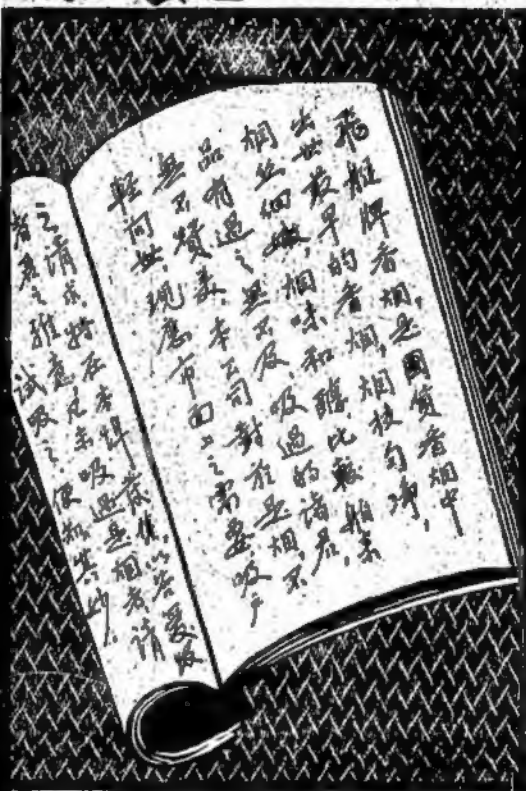 飛艇牌香烟，是國貨香烟中，
出世最早的香烟，烟枝勻淨，
烟絲細嫩，烟味和醇，比較舶來
品有過之無不及，吸過的諸君，
無不贊美，本公司對於是烟，不
輕問世，現應市面上之需要，吸戶
之請求，特在本埠發售，以答愛吸
者之雅意，凡未吸過是烟者，請
試吸之，便知其妙。